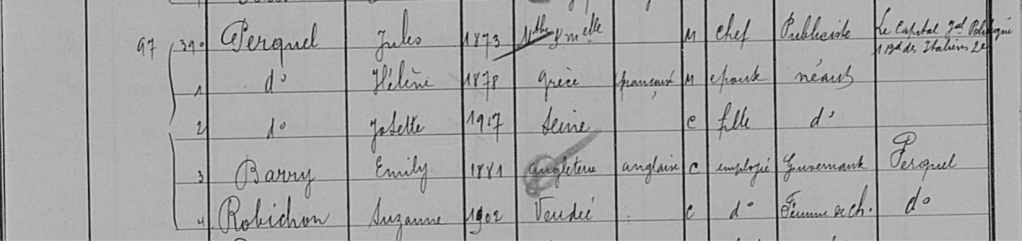 97 390 Perquel Jules 1873 Mthe Gmelle M chef Publiciste Le Capital Jal Politique
1 Bd des Italiens 2e
1 do Hélène 1878 Grèce française M epouse néant
2 do Josette 1917 Seine C fille do
3 Barry Emily 1881 Angleterre anglaise C employée Gouvernante Perquel
4 Robichon Suzanne 1902 Vendée C do Femme de ch. do